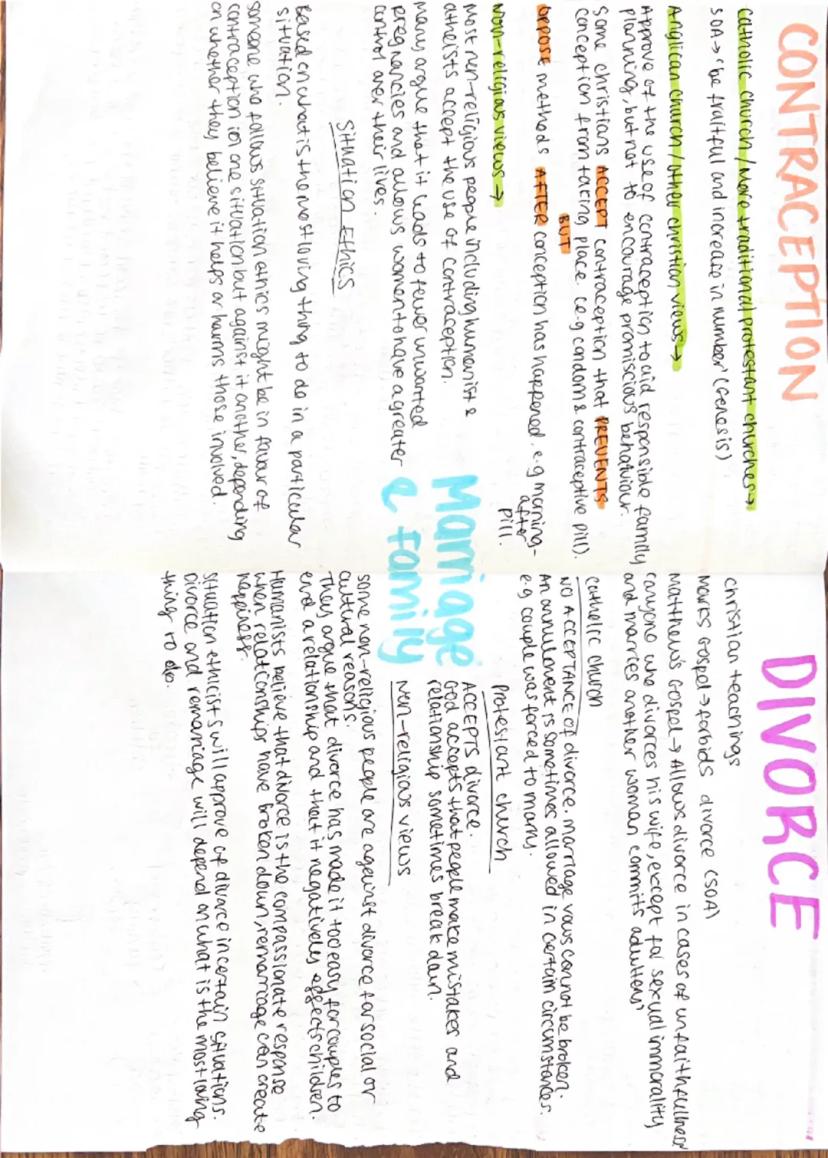 CONTRACEPTION
Catholic church/More traditional protestant churches→
SOA→'be fruitful and increase in number' (Genesis)
Anglican church/other christian views→
Approve of the use of contraception to aid responsible family
planning, but not to encourage promiscious behaviour.
Some christians ACCEPT contraception that PREVENTS
conception from tacing place. (e.g condom & contraceptive pill).
BUT
oppose methods AFTER conception has happened. e.g morning-
after
pill.
Non-religious views→
Most non-religious people including humanist &
atheists accept the use of contraception.
Many argue that it leads to fewer unwanted
pregnancies and allows women to have a greater
control over their lives.
Situation Ethics
Based on what is the most loving thing to do in a particular
situation.
someone who follows situation ethics might be in favour of
contraception ion one situation but against it another, depending
on whether they believe it helps or harms those involved.
Marriage
& family
DIVORCE
Christian teachings
Mark's Gospel→forbids divorce (SOA)
Matthew's Gospel→Allows divorce in cases of unfaithfullness
'anyone who divorces his wife, except for sexual immorality
and marries another woman commits adultery'
Catholic church
NO ACCEPTANCE of divorce. marriage vows cannot be broken.
An annulment is sometimes allowed in certain circumstances.
e.g couple was forced to marry.
Protestant church
ACCEPTS divorce.
God accepts that people make mistakes and
relationship sometimes break down.
Non-religious views
some non-religious people are against divorce for social or
cultural reasons.
They argue that divorce has made it too easy for couples to
end a relationship and that it negatively effects children.
Humanists believe that divorce is the compassionate response
when relationships have broken down, remarriage can create
happiness.
situation ethicists will approve of divorce in certain situations.
Divorce and remarriage will depend on what is the most loving
thing to do.